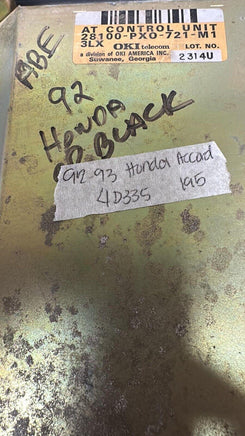 AT CONTROL UNIT
28100-PX0-721-M1
3LX OKI telecom LOT. NO.
a division of OKI AMERICA INC.
Suwanee, Georgia 2314U
ABE
92
HONDA
BLACK
92-93 Honda Accad
4D335 195